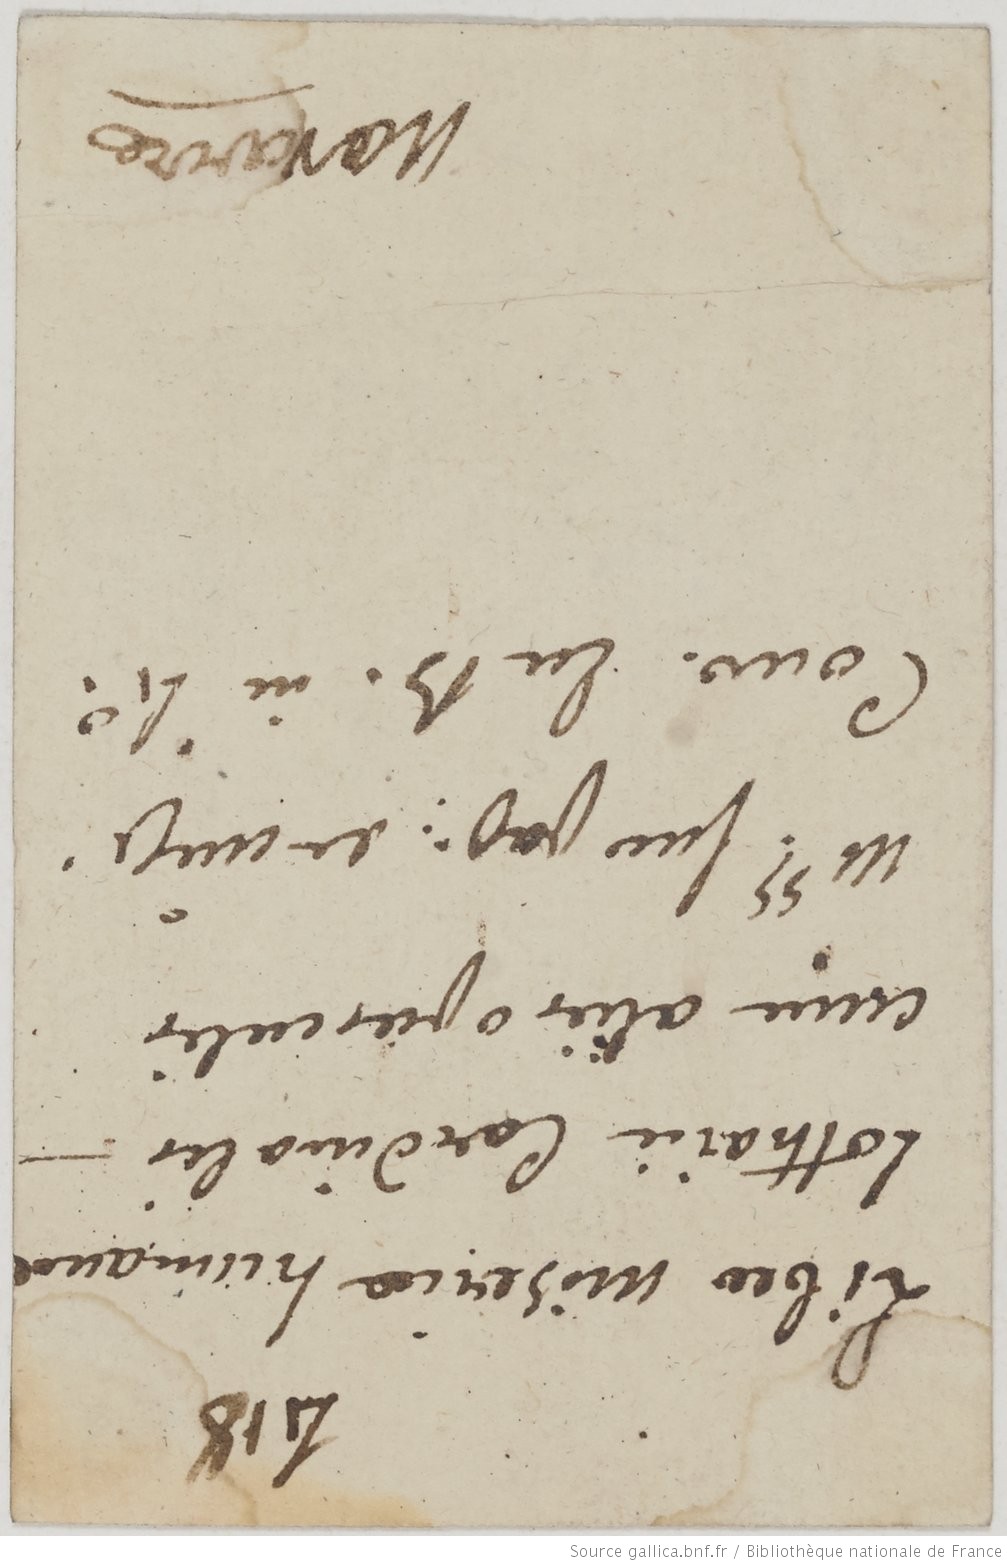 418
Liber miseriæ humanæ
Lotharii Cardinalis —
cum aliis opusculis
mss: sur pap:
Couv. en B. in 4°.
Navarre
Source gallica.bnf.fr / Bibliothèque nationale de France